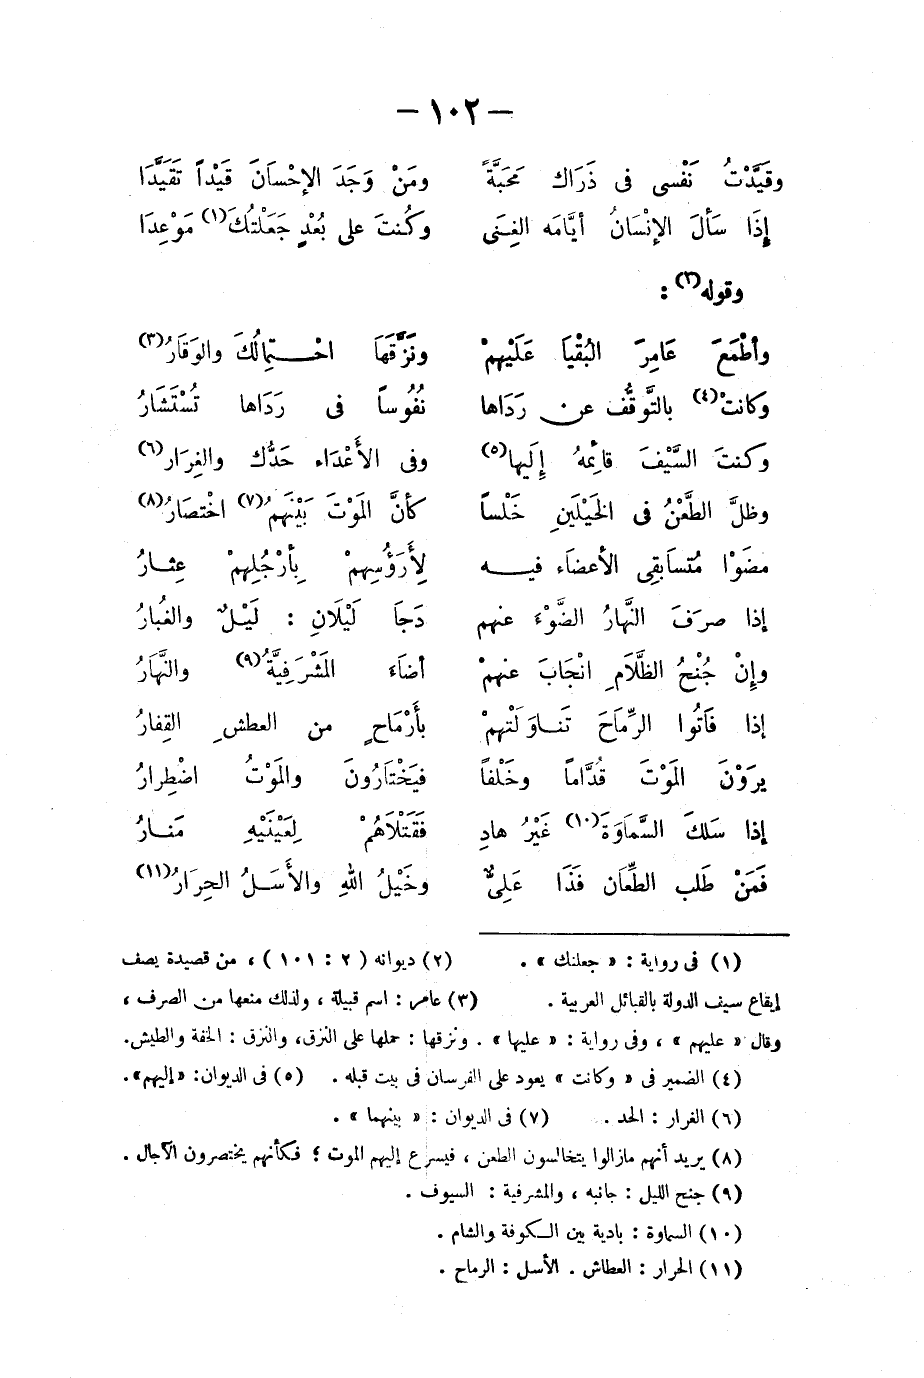 — ١٠٢ —
وقَيَّدْتُ نَفْسى فى ذَرَاك مَحَبَّةً ومَنْ وَجَدَ الإحْسَانَ قَيْداً تَقَيَّدَا
إِذَا سَأَلَ الإنْسَانُ أيَّامَه الغِنَى وكُنتَ على بُعْدٍ جَعَلْتُكَ(١) مَوْعِدَا
وقوله(٢) :
وأطْمَعَ عَامِرَ البُقْيَا عَلَيْهِمْ ونَزَّقَهَا احْتِمَالُكَ والوَقَارُ(٣)
وكانتْ(٤) بالتَّوقُّف عن رَدَاها نُفُوساً فى رَدَاها تُسْتَشَارُ
وكنتَ السَّيْفَ قائِمُهُ إِلَيها(٥) وفى الأَعْدَاء حَدُّك والغِرَار(٦)
وظلَّ الطَّعْنُ فى الخَيْلَينِ خَلْساً كأنَّ المَوْتَ بَيْنَهمُ(٧) اخْتصَارُ(٨)
مضَوْا مُتسَابقِى الأعضَاء فيه لِأَرْؤُسِهِمْ بِأرْجُلِهِمْ عِثارُ
إذا صرَفَ النَّهارُ الضَّوْءَ عنهم دَجَا لَيْلَانِ : لَيْلٌ والغُبارُ
وإِنْ جُنْحُ الظَّلَامِ انْجَابَ عنهمْ أضَاءَ المَشْرَفِيَّةُ(٩) والنَّهَارُ
إذا فَاتُوا الرِّمَاحَ تَناوَلَتْهمْ بأَرْمَاحٍ من العطشِ القِفارُ
يرَوْنَ المَوْتَ قُدَّاماً وخَلْفاً فيَخْتَارُونَ والمَوْتُ اضْطِرارُ
إذا سَلكَ السَّمَاوَةَ(١٠) غَيْرُ هادٍ فَقَتْلَاهُمْ لِعَيْنَيْهِ مَنارُ
فَمَنْ طَلب الطِّعَان فَذَا عَلِىٌّ وخَيْلُ اللهِ والأَسَلُ الحِرَارُ(١١)
(١) فى رواية : « جعلنك » . (٢) ديوانه ( ٢ : ١٠١ ) ، من قصيدة يصف
إيقاع سيف الدولة بالقبائل العربية . (٣) عامر : اسم قبيلة ، ولذلك منعها من الصرف ،
وقال « عليهم » ، وفى رواية : « عليها » . ونزقها : حملها على النزق، والنزق : الخفة والطيش.
(٤) الضمير فى « وكانت » يعود على الفرسان فى بيت قبله . (٥) فى الديوان: «إليهم».
(٦) الغرار : الحد . (٧) فى الديوان : « بينهما » .
(٨) يريد أنهم مازالوا يتخالسون الطعن ، فيسرع إليهم الموت ؛ فكأنهم يختصرون الآجال .
(٩) جنح الليل : جانبه ، والمشرفية : السيوف .
(١٠) السماوة : بادية بين الكوفة والشام .
(١١) الحرار : العطاش . الأسل : الرماح .